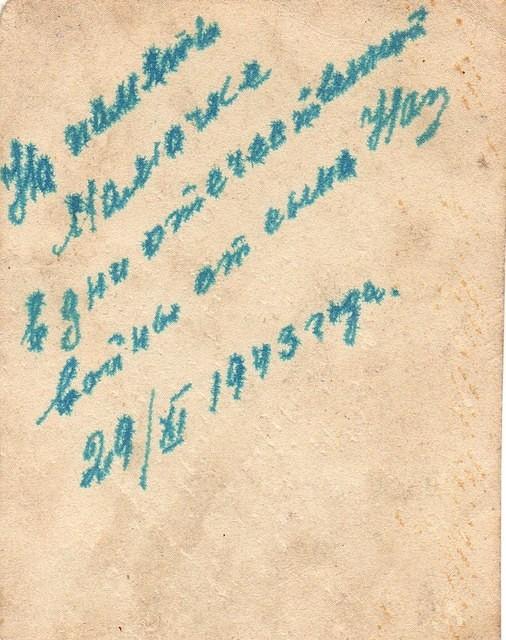 На память
Мамочке
в дни отечественной
войны от сына
29/XI 1943 года.